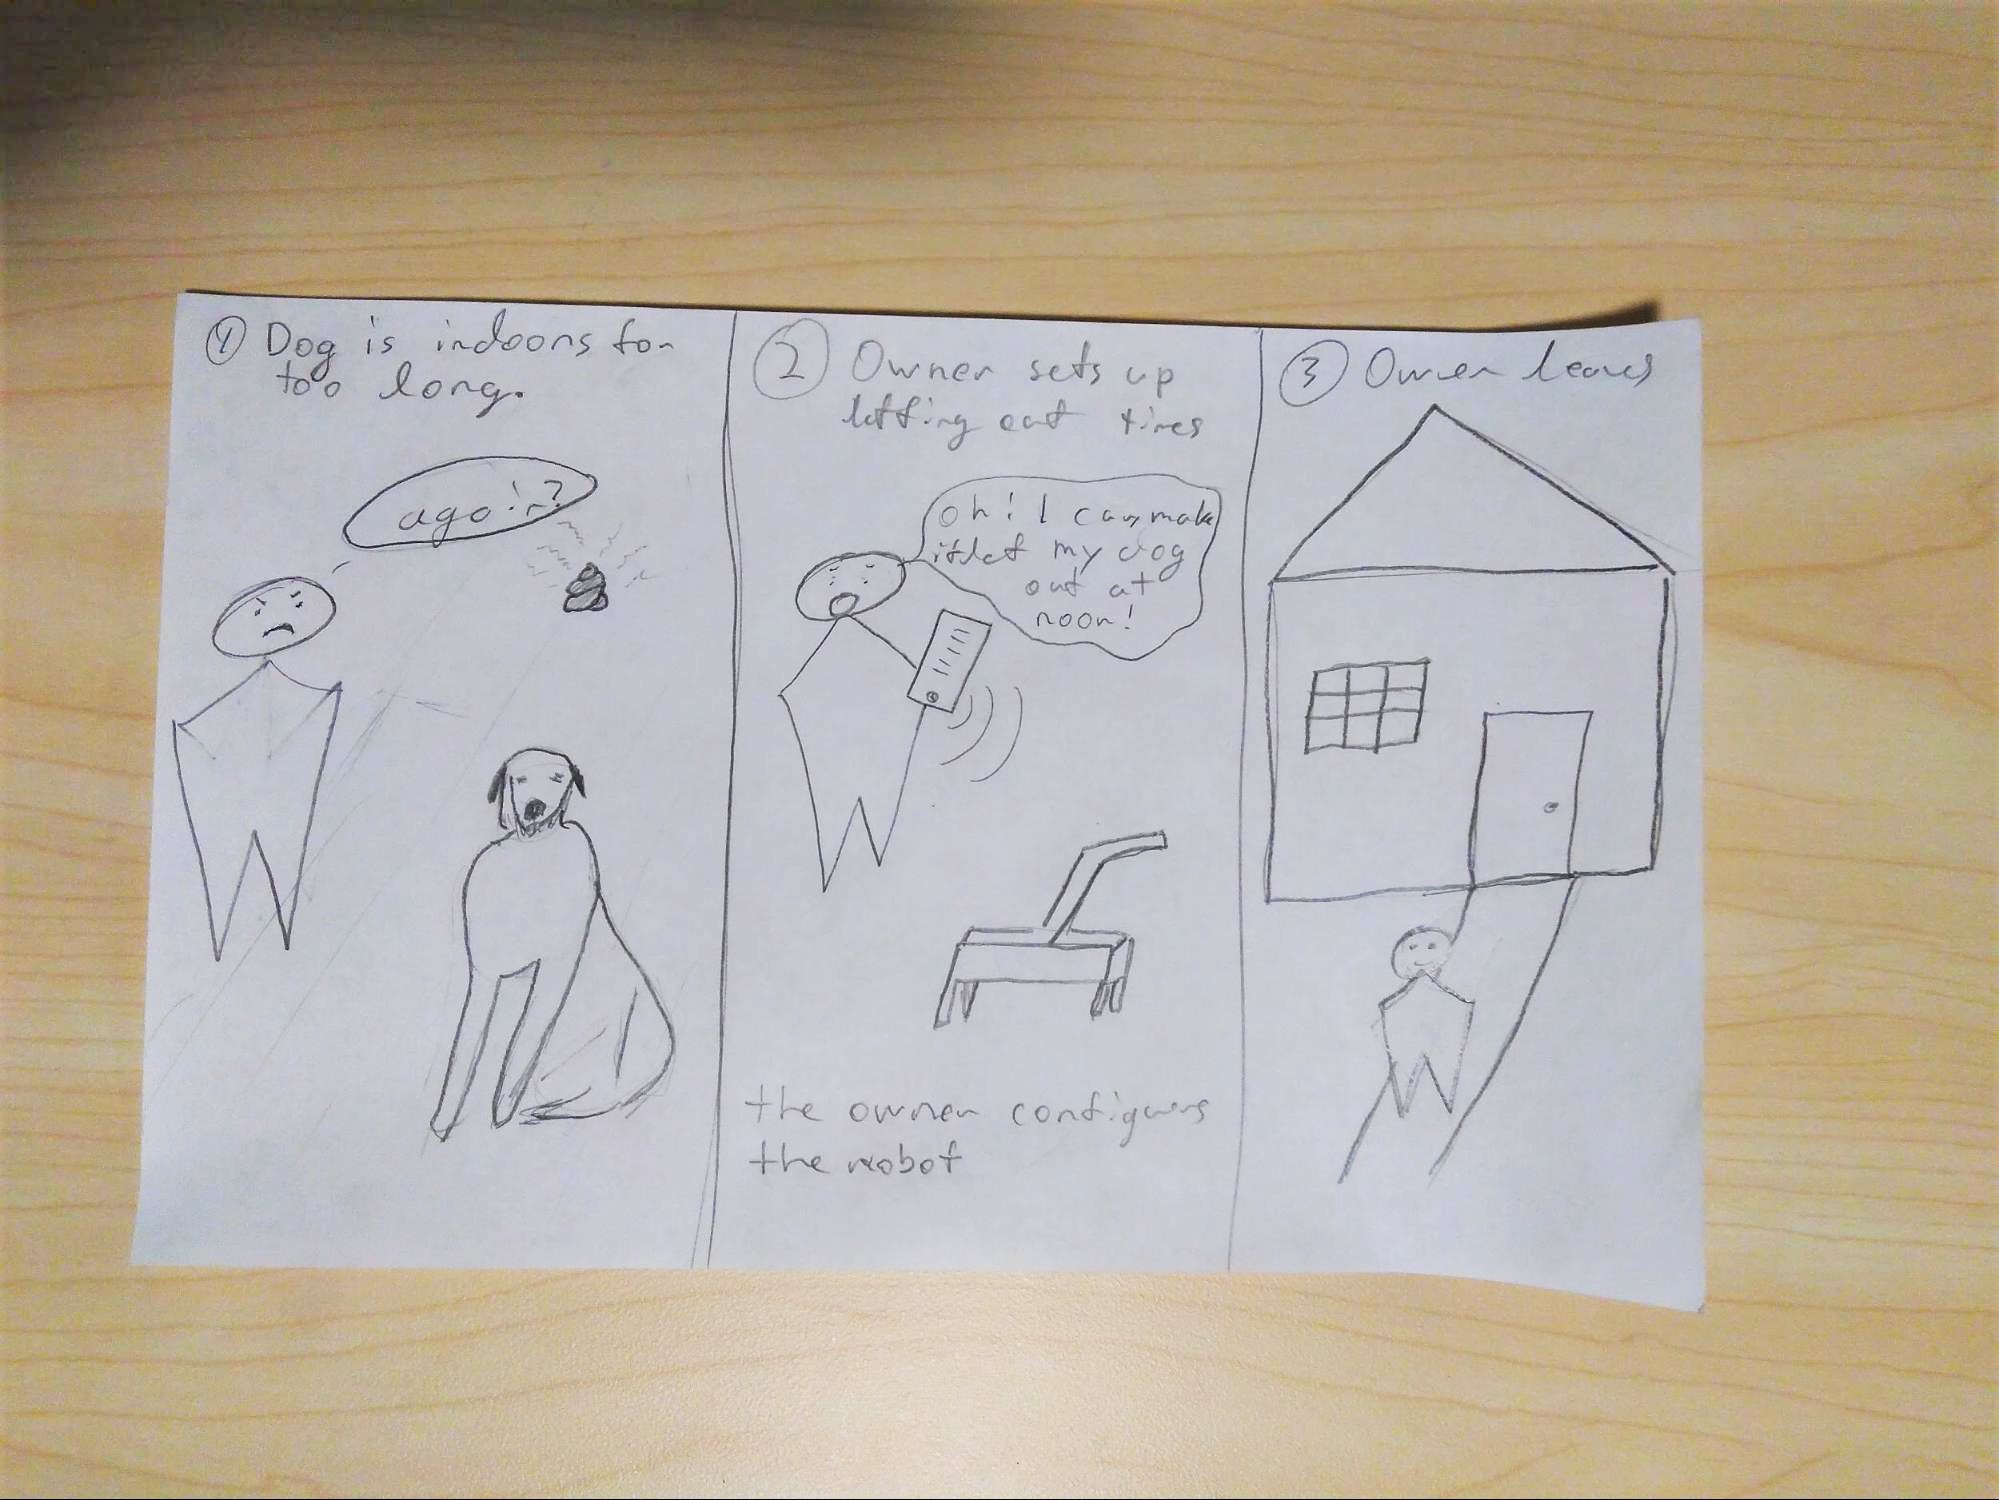 1 Dog is indoors for
too long.
again?
2 Owner sets up
letting out times
oh! I can make
it let my dog
out at
noon!
the owner configures
the robot
3 Owner leaves